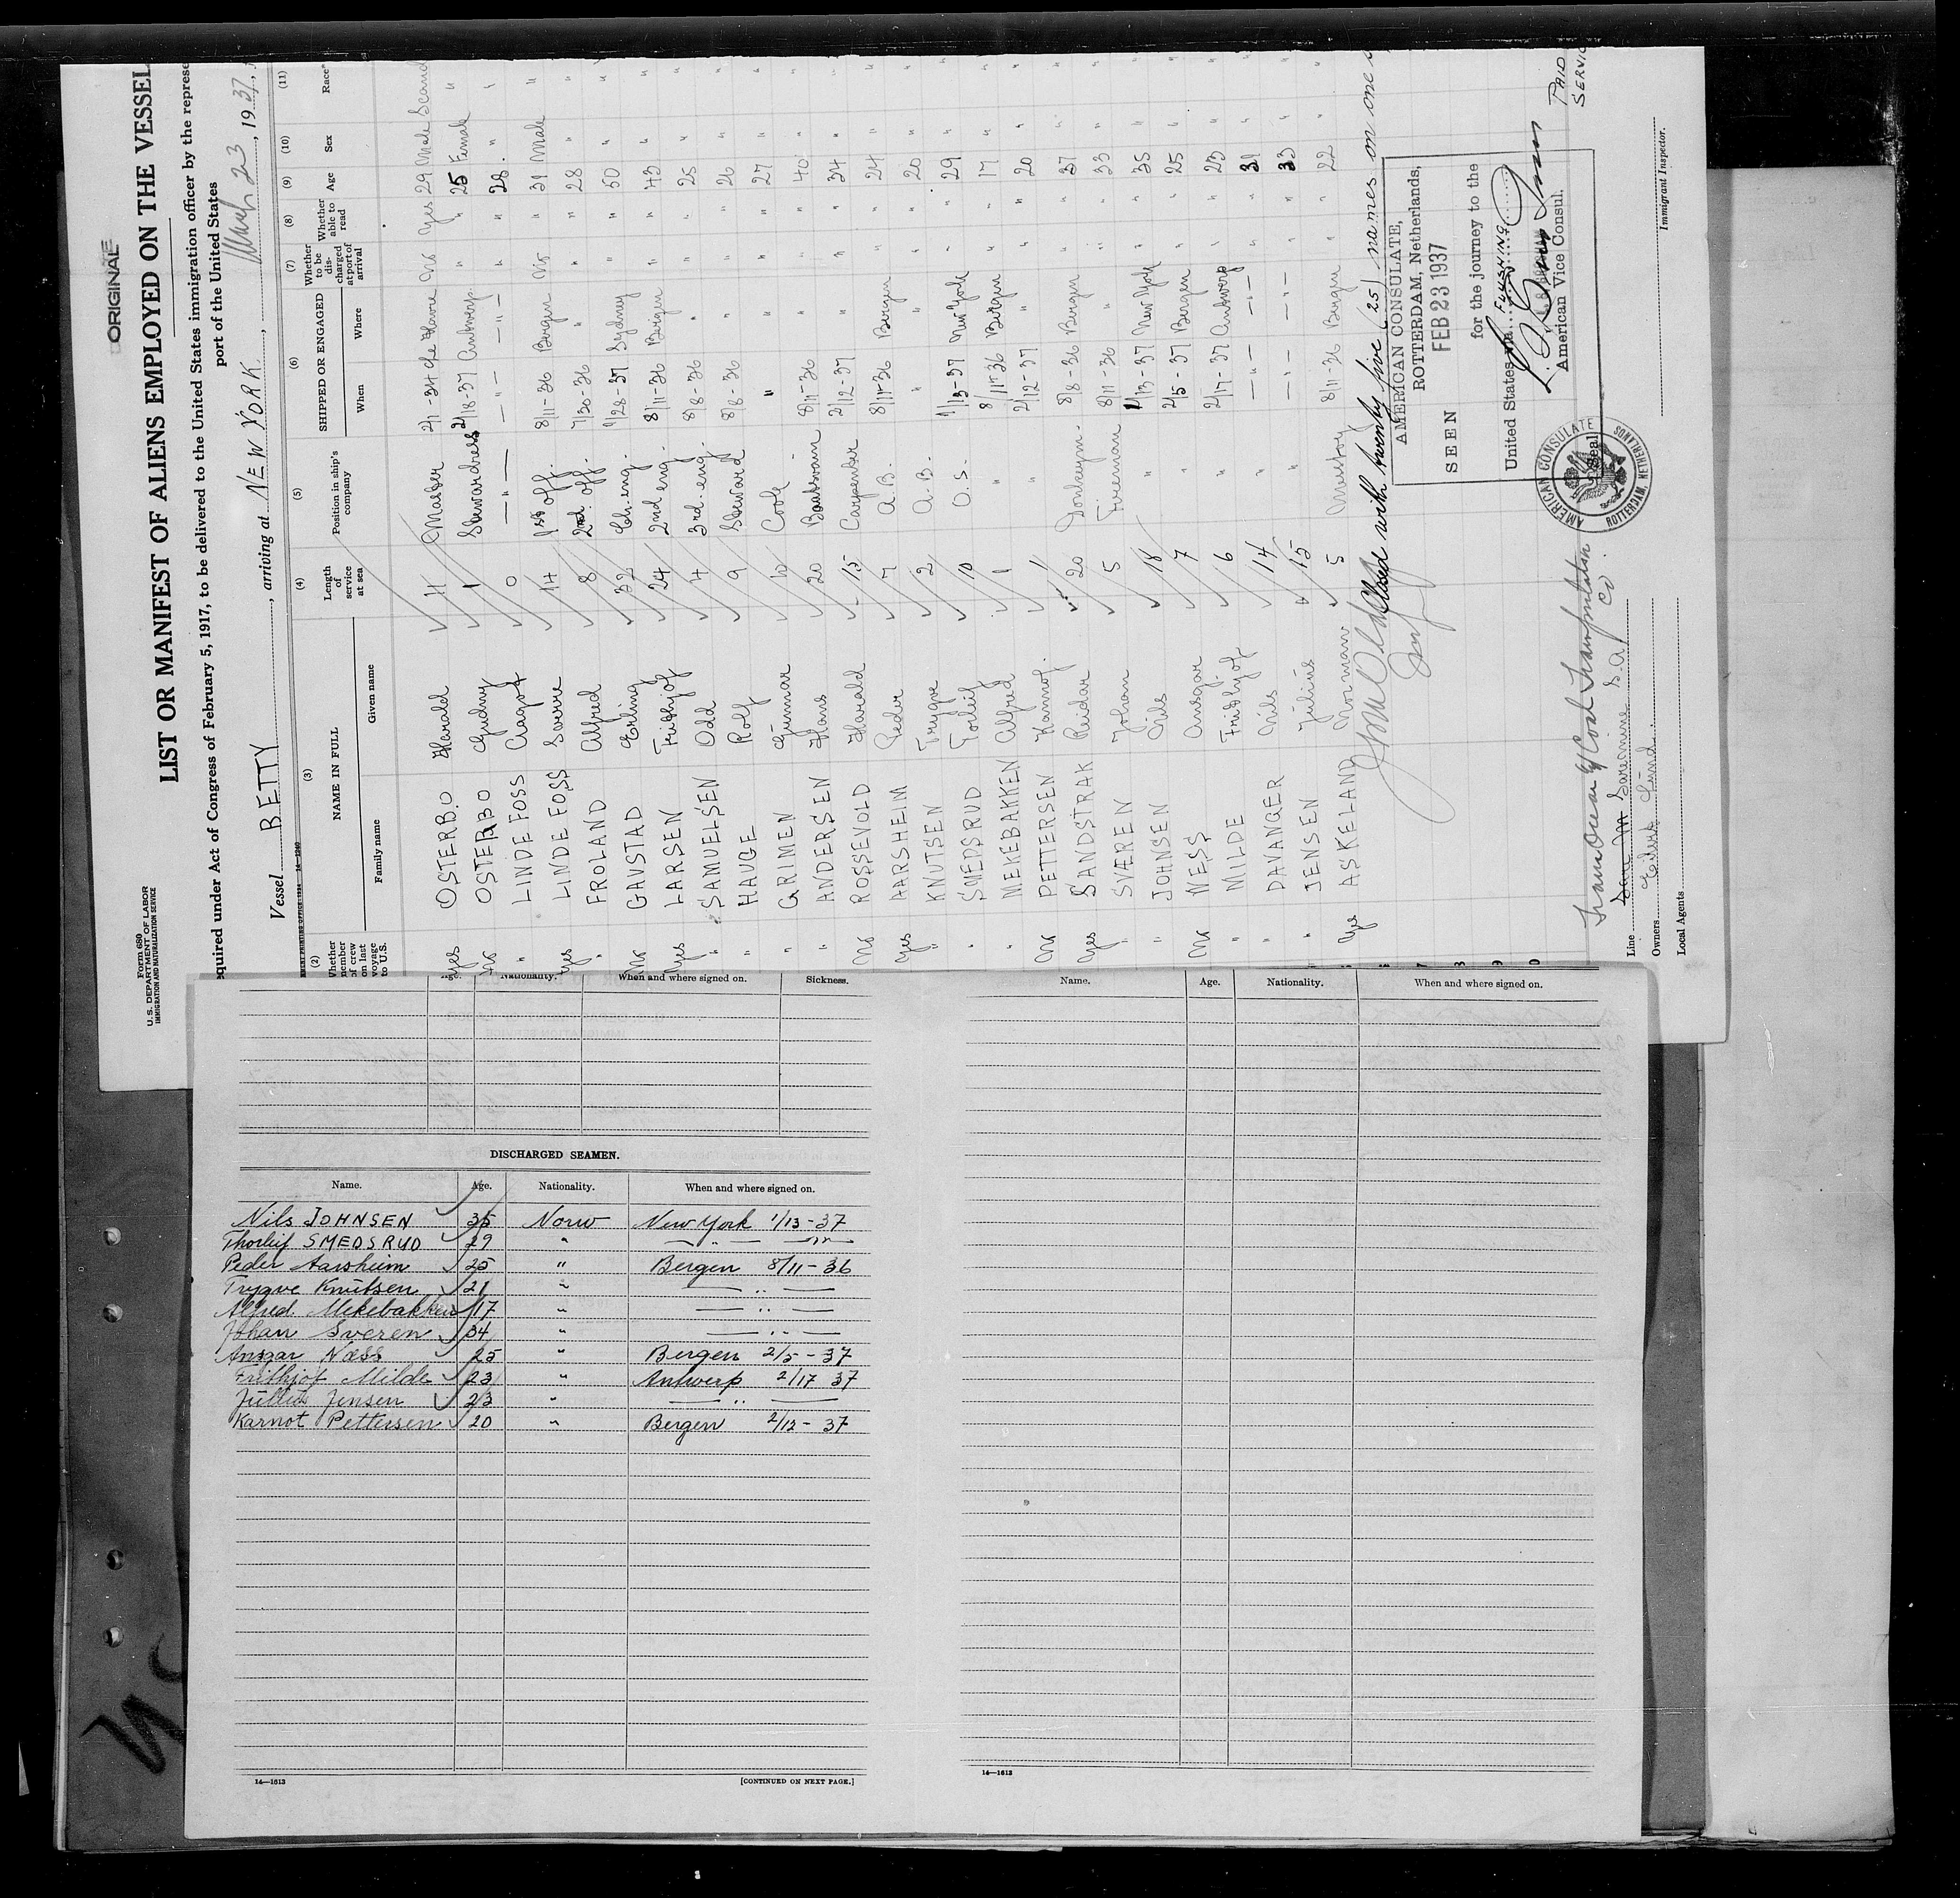 ORIGINAL
Form 680
U. S. DEPARTMENT OF LABOR
IMMIGRATION AND NATURALIZATION SERVICE
LIST OR MANIFEST OF ALIENS EMPLOYED ON THE VESSEL
equired under Act of Congress of February 5, 1917, to be delivered to the United States immigration officer by the represe
port of the United States
Vessel BETTY, arriving at NEW YORK, March 23, 1937,
(2) (3) (4) (5) (6) (7) (8) (9) (10) (11)
Whether member of crew on last voyage to U.S. NAME IN FULL Family name Given name Length of service at sea Position in ship's company SHIPPED OR ENGAGED When Where Whether to be discharged at port of arrival Whether able to read Age Sex Race*
yes OSTERBO Harald 11 Master 2/1-34 the Havre No yes 29 Male Scand
No OSTERBO Gudny 1 Stewardess 2/18-37 Antwerp " " 25 Female "
" LINDE FOSS Aagot 0 —"— —"— —"— " " 28 " "
yes LINDE FOSS Sverre 14 1st off. 8/11-36 Bergen No " 31 Male "
FROLAND Alfred 8 2nd. off. 7/30-36 " " " 28 " "
No GAUSTAD Erling 32 Ch. eng. 1/28-37 Sydney " " 50 " "
yes LARSEN Frithjof 24 2nd eng. 8/11-36 Bergen " " 43 " "
" SAMUELSEN Odd 4 3rd. eng. 8/8-36 " " " 25 " "
" HAUGE Rolf 9 Steward 8/8-36 " " " 26 " "
" GRIMEN Gunnar 10 Cook " " " " 27 " "
" ANDERSEN Hans 20 Boatswain 8/11-36 " " " 40 " "
No ROSSEVOLD Harald 15 Carpenter 2/12-37 " " " 34 " "
yes AARSHEIM Peder 7 A.B. 8/11-36 Bergen " " 24 " "
" KNUTSEN Trygve 2 A.B. " " " " 20 " "
" SMEDSRUD Torleif 10 O.S. 1/13-37 New York " " 29 " "
" MEKEBAKKEN Alfred 1 " 8/11-36 Bergen " " 17 " "
No PETTERSEN Karnot. 1 " 2/12-37 " " " 20 " "
yes SANDSTRAK Reidar 20 Donkeym. 8/8-36 Bergen " " 37 " "
" SVÆREN Johan 5 Fireman 8/11-36 " " " 33 " "
" JOHNSEN Nils 18 " 1/13-37 New York " " 35 " "
No NESS Ansgar 7 " 2/5-37 Bergen " " 25 " "
" MILDE Frithjof 6 " 2/17-37 Antwerp " " 23 " "
" DAVANGER Nils 14 " —"— —"— " " 31 " "
" JENSEN Julius 15 " —"— —"— " " 33 " "
yes ASKELAND Norman 5 8/11-36 Bergen " " 22 " "
Closed with twenty five (25) names on one
AMERICAN CONSULATE,
ROTTERDAM, Netherlands,
FEB 23 1937
SEEN for the journey to the
United States via FLUSHING
American Vice Consul.
AMERICAN CONSULATE
ROTTERDAM, NETHERLANDS
Seal
PAID
SERVIC
Line
Owners
Local Agents
Immigrant Inspector.
Age. Nationality. When and where signed on. Sickness.
Name. Age. Nationality. When and where signed on.
DISCHARGED SEAMEN.
Name. Age. Nationality. When and where signed on.
Nils JOHNSEN 35 Norw New York 1/13-37
Thorleif SMEDSRUD 29 " — " — — " —
Peder Aarsheim 25 " Bergen 8/11-36
Trygve Knutsen 21 " — " —
Alfred Mekebakken 17 " — " —
Johan Sveren 34 " — " —
Ansgar Næss 25 " Bergen 2/5-37
Frithjof Milde 23 " Antwerp 2/17 37
Jullius Jensen 23 " — " —
Karnot Pettersen 20 " Bergen 2/12-37
14—1613 [CONTINUED ON NEXT PAGE.]
14—1613